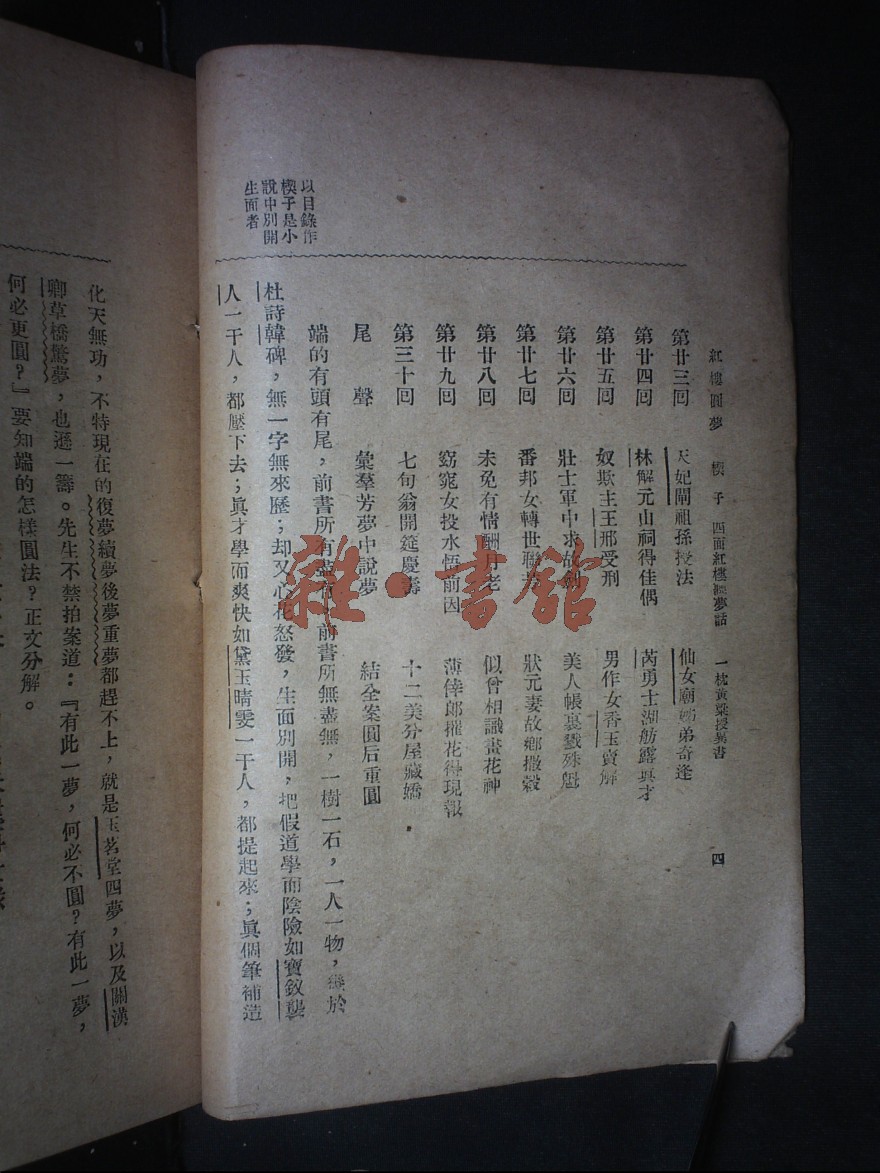 紅樓圓夢　楔子　四面紅樓圓夢話　一枕黃粱授異書　四
第廿三回　天妃閘祖孫授法　仙女廟　弟奇逢
第廿四回　林解元山祠得佳偶　芮勇士湖舫露真才
第廿五回　奴欺主王邢受刑　男作女香玉賣解
第廿六回　壯士軍中求故劍　美人帳裏戮殊魁
第廿七回　番邦女轉世聯　狀元妻故鄉撒穀
第廿八回　未免有情酬月老　似曾相識畫花神
第廿九回　窈窕女投水悟前因　薄倖郎摧花得現報
第三十回　七旬翁開筵慶壽　十二美分屋藏嬌
尾　聲　彙羣芳夢中說夢　結全案圓后重圓
端的有頭有尾，前書所有盡有，前書所無盡無，一樹一石，一人一物，幾於
杜詩韓碑，無一字無來歷；却又心花怒發，生面別開，把假道學而陰險如寶釵襲
人一干人，都壓下去；眞才學而爽快如黛玉晴雯一干人，都提起來；眞個筆補造
以目錄作
楔子是小
說中別開
生面者
化天無功，不特現在的復夢續夢後夢重夢都趕不上，就是玉茗堂四夢，以及關漢
卿草橋驚夢，也遜一籌。先生不禁拍案道：『有此一夢，何必不圓？有此一夢，
何必更圓？』要知端的怎樣圓法？正文分解。
雜·書館